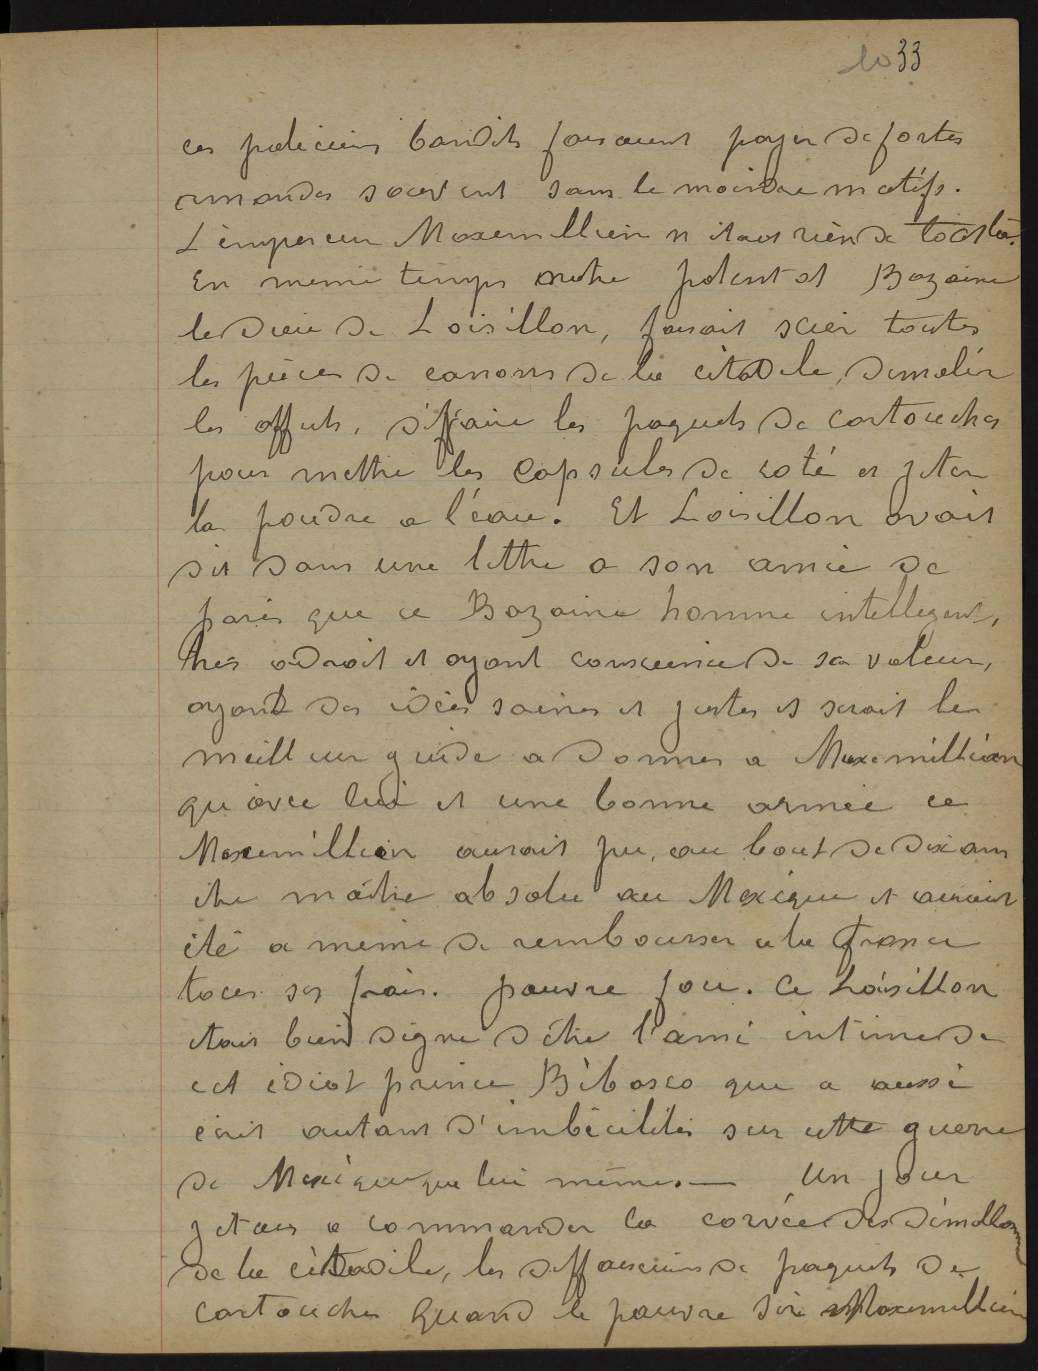 1033
ces policiers bandits faisaient payer de fortes
amandes souvent sans le moindre motifs.
L'émpereur Maxemillien n'etait rièn de tout là.
En meme temps notre potentat Bazaine
le dieu de Loisillon, faisait scier toutes
les pièces de canons de la citadele, demolir
les affuts, défaire les paquets de cartouches
pour mettre les capsules de coté et jeter
la poudre a l'éau. Et Loisillon avait
dit dans une lettre a son amie de
paris que ce Bazaine homme intellegent,
tres adroit et ayant conscience de sa valeur,
ayant des idées saines et justes et serait le
meilleur guide a donner a Maxemillian
qu'avec lui et une bonne armée ce
Maxemillien aurait pu, au bout de dix ans
etre maître absolu au Mexique et aurait
été a meme de rembourser a la France
tous ses frais. pauvre fou. Ce Loisillon
etait bien digne d'etre l'ami intime de
cet idiot prince Bibesco que a aussi
ecrit autant d'imbécilités sur cette guerre
de Mexique que lui même. — Un jour
j'etais a commander la corvée des démolisseurs
de la citadele, les deffaiseurs de paquets de
cartouches quand le pauvre sire Maxemillien